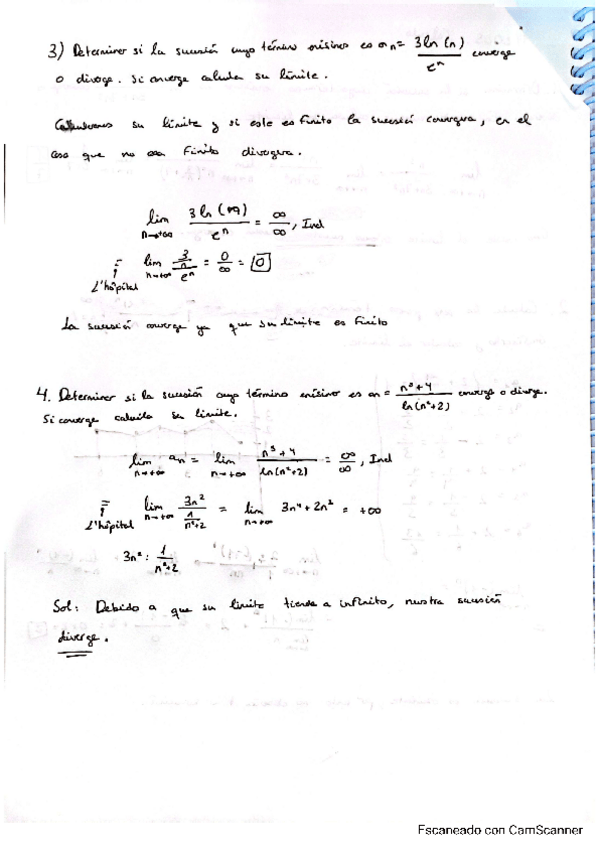 3) Determinar si la sucesión cuyo término enésimo es an = 3 ln (n) / e^n converge
o diverge. Si converge calcula su límite.
Calculamos su límite y si este es finito la sucesión convergera, en el
caso que no sea finito divergera.
lim n→+∞ 3 ln (+∞) / e^n = ∞/∞, Ind
= L'hôpital lim n→+∞ (3/n) / e^n = 0/∞ = 0
La sucesión converge ya que su límite es finito
4. Determinar si la sucesión cuyo término enésimo es an = n³+4 / ln(n²+2) converge o diverge.
Si converge calcula su límite.
lim n→+∞ an = lim n→+∞ n³+4 / ln(n²+2) = ∞/∞, Ind
= L'hôpital lim n→+∞ 3n² / (1/(n²+2)) = lim n→+∞ 3n⁴+2n² = +∞
3n² : 1/(n²+2)
Sol: Debido a que su límite tiende a infinito, nuestra sucesión
diverge.
Escaneado con CamScanner